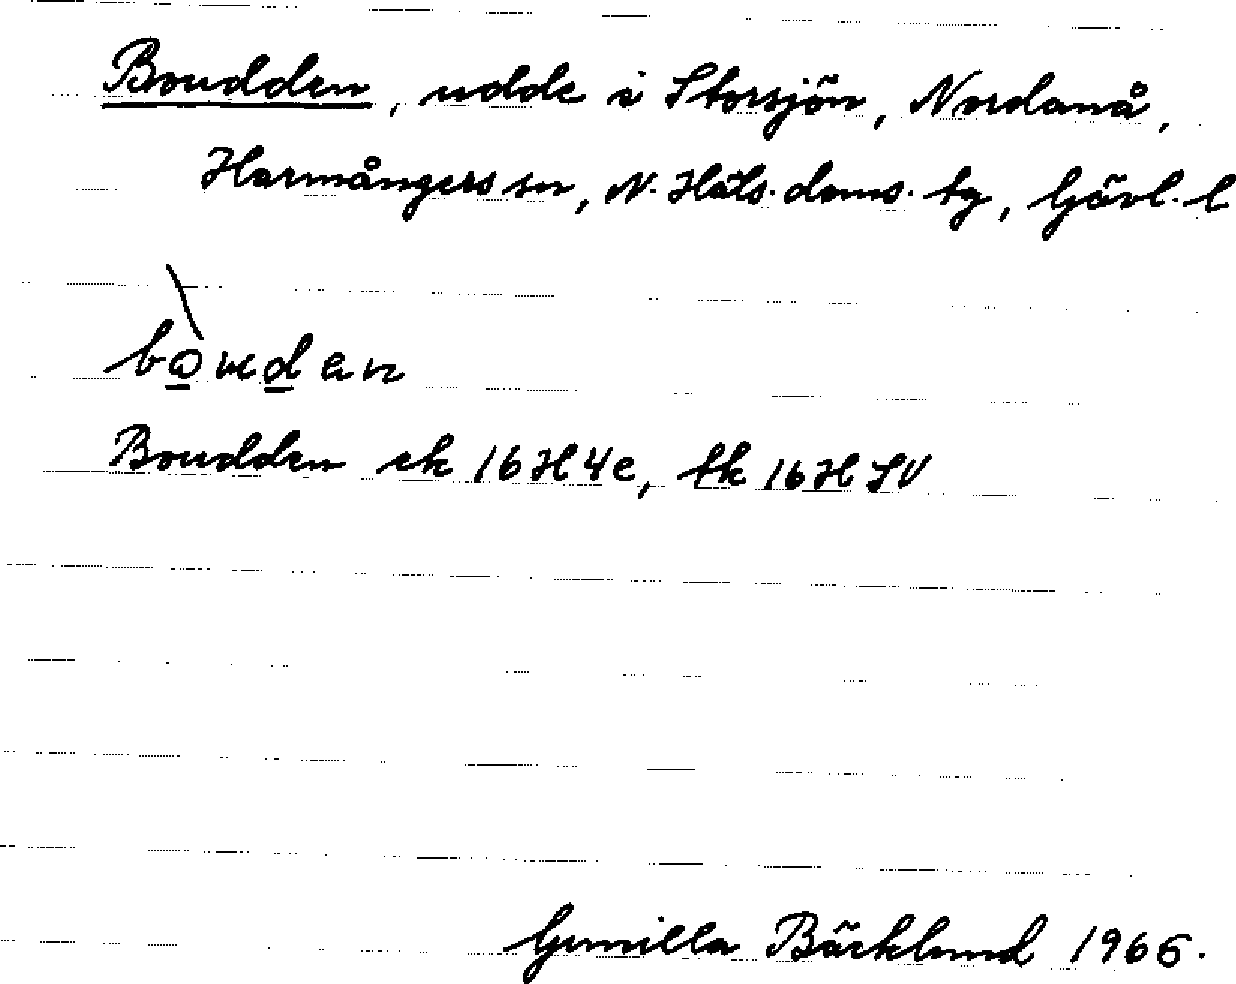 Boudden, udde i Storsjön, Nordanå,
Harmångers sn, N. Häls. doms. tg, Gävl. l
Boudden ek 16H4e, tk 16H SV
Gunilla Bäcklund 1966.